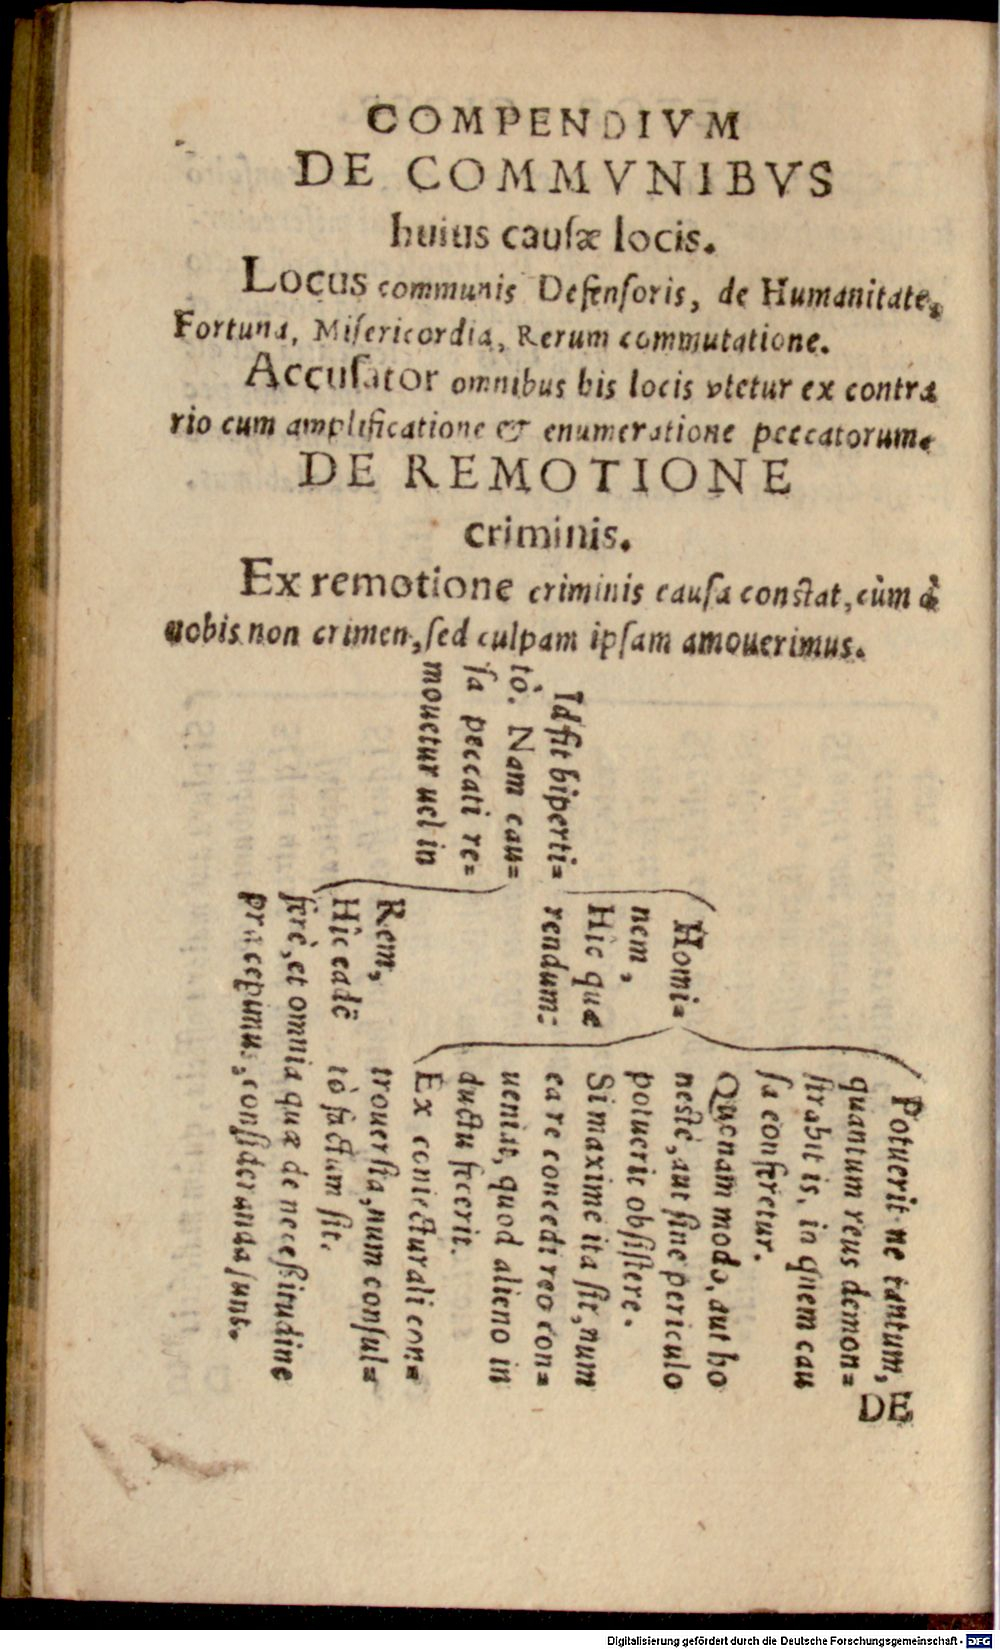 COMPENDIVM
DE COMMVNIBVS
huius causæ locis.
Locus communis Defensoris, de Humanitate,
Fortuna, Misericordia, Rerum commutatione.
Accusator omnibus his locis vtetur ex contra
rio cum amplificatione & enumeratione peccatorum.
DE REMOTIONE
criminis.
Ex remotione criminis causa constat, cùm à
nobis non crimen, sed culpam ipsam amouerimus.
Id fit biperti=
tò. Nam cau=
sa peccati re=
mouetur uel in
Homi=
nem,
Hîc quæ
rendum:
Potuerit ne tantum,
quantum reus demon=
strabit is, in quem cau
sa confertur.
Quónam modo, aut ho
nestè, aut sine periculo
potuerit obsistere.
Si maxime ita sit, num
ea re concedi reo con=
ueniat, quod alieno in
ductu fecerit.
Ex coniecturali con=
trouersia, num consul=
tò factum sit.
Rem,
Hîc eadē
ferè, et omnia quæ de necessitudine
præcepimus, consideranda sunt.
DE
Digitalisierung gefördert durch die Deutsche Forschungsgemeinschaft - DFG